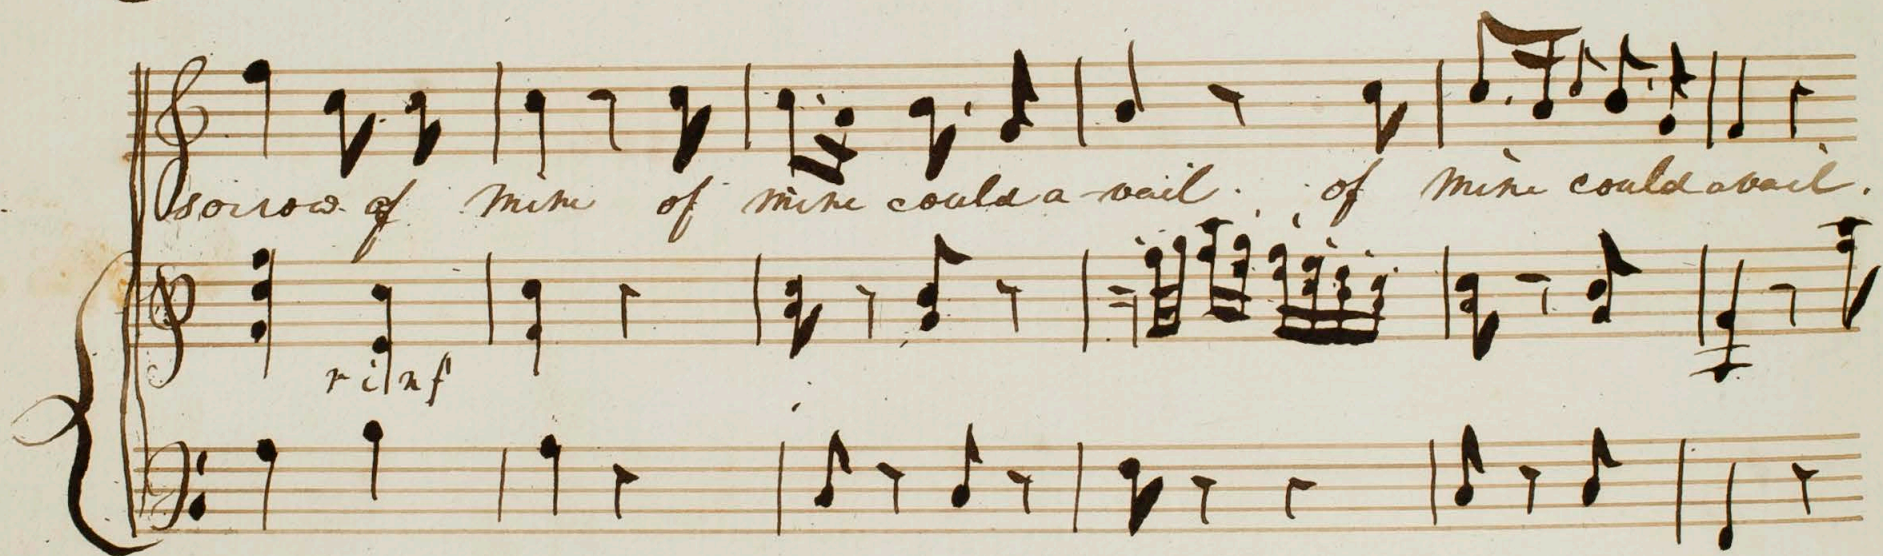 sorrow of mine of mine could a-vail. of mine could avail.
rinf